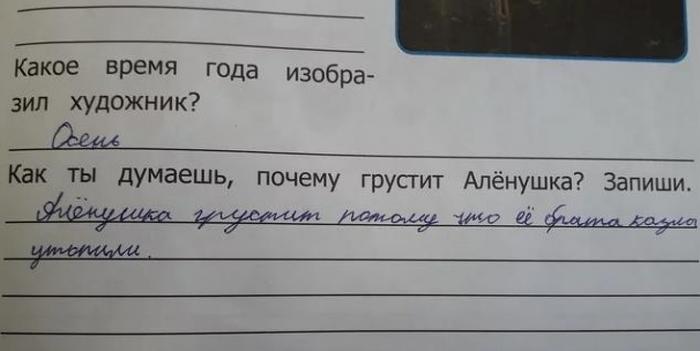 Какое время года изобра-
зил художник?
Осень
Как ты думаешь, почему грустит Алёнушка? Запиши.
Алёнушка грустит потому что её брата козла
утопили.